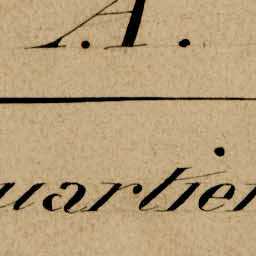 A.
uartier